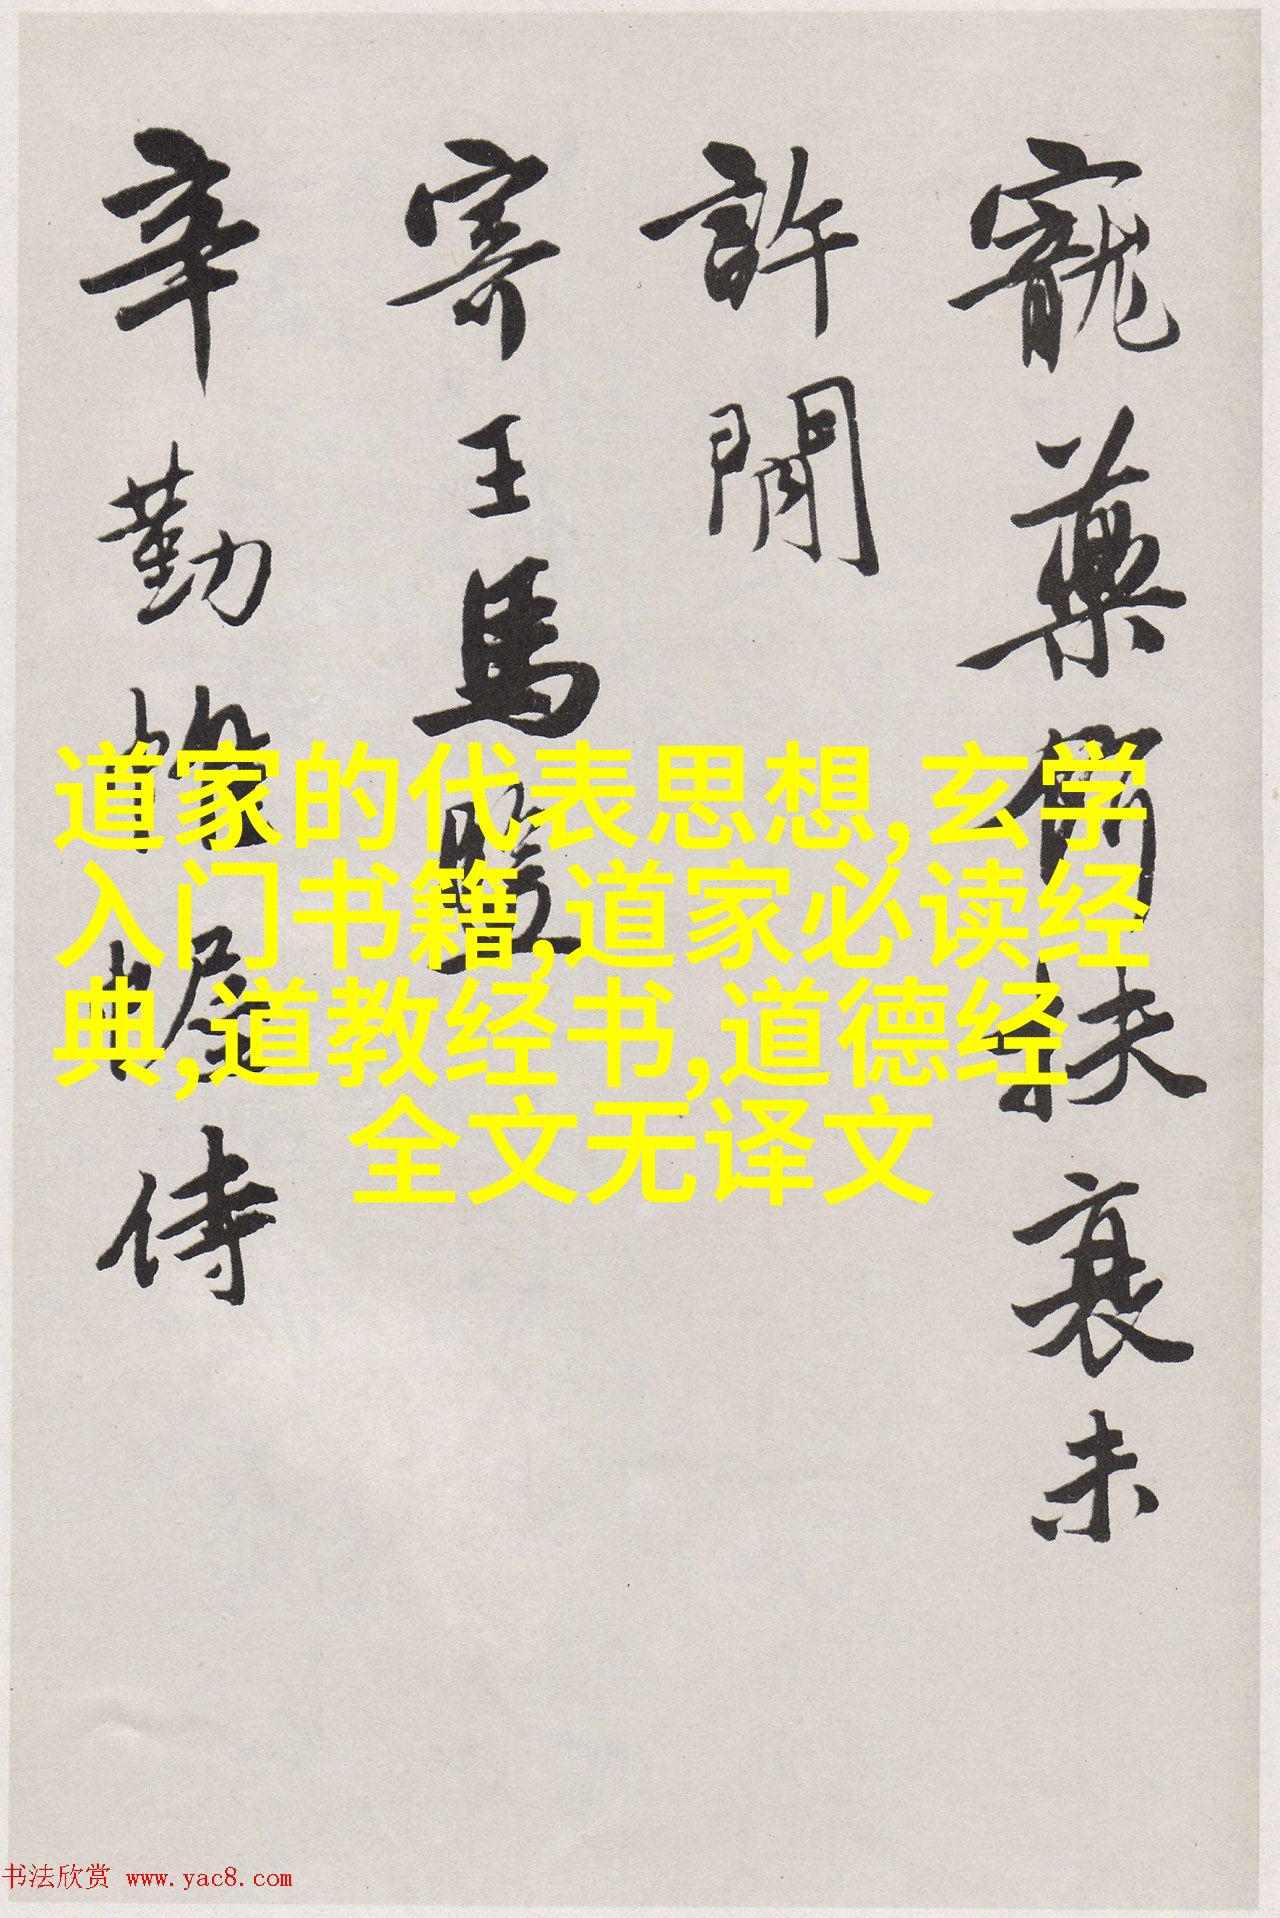 寵藥偕扶衰未
許閒
寄王馬毉
辛勤惟幄侍
道家的代表思想,玄学
入门书籍,道家必读经
典,道教经书,道德经
全文无译文
书法欣赏 www.yac8.com